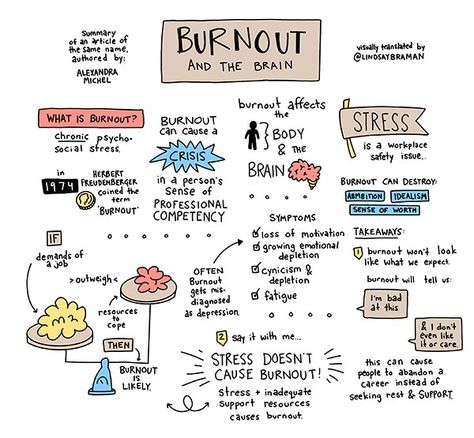 Summary
of an article of
the same name,
authored by:
ALEXANDRA
MICHEL
BURNOUT
AND THE BRAIN
visually translated by
@LINDSAYBRAMAN
WHAT IS BURNOUT?
chronic psycho-
social stress.
in
1974
HERBERT
FREUDENBERGER
coined the
term
'BURNOUT'
BURNOUT
can cause a
CRISIS
in a person's
sense of
PROFESSIONAL
COMPETENCY
burnout affects
the
BODY
& the
BRAIN
STRESS
is a workplace
safety issue.
BURNOUT CAN DESTROY:
ABMBITION
IDEALISM
SENSE OF WORTH
IF
demands of
a job
>outweigh<
resources
to cope
THEN
BURNOUT
IS LIKELY.
OFTEN
Burnout
gets mis-
diagnosed
as depression.
SYMPTOMS
loss of motivation
growing emotional
depletion
cynicism &
depletion
fatigue
TAKEAWAYS:
1 burnout won't look
like what we expect.
burnout will tell us:
I'm bad
at this
& I don't
even like
it or care.
this can cause
people to abandon a
career instead of
seeking rest & SUPPORT.
2 say it with me...
STRESS DOESN'T
CAUSE BURNOUT!
Stress + inadequate
support resources
causes burnout.